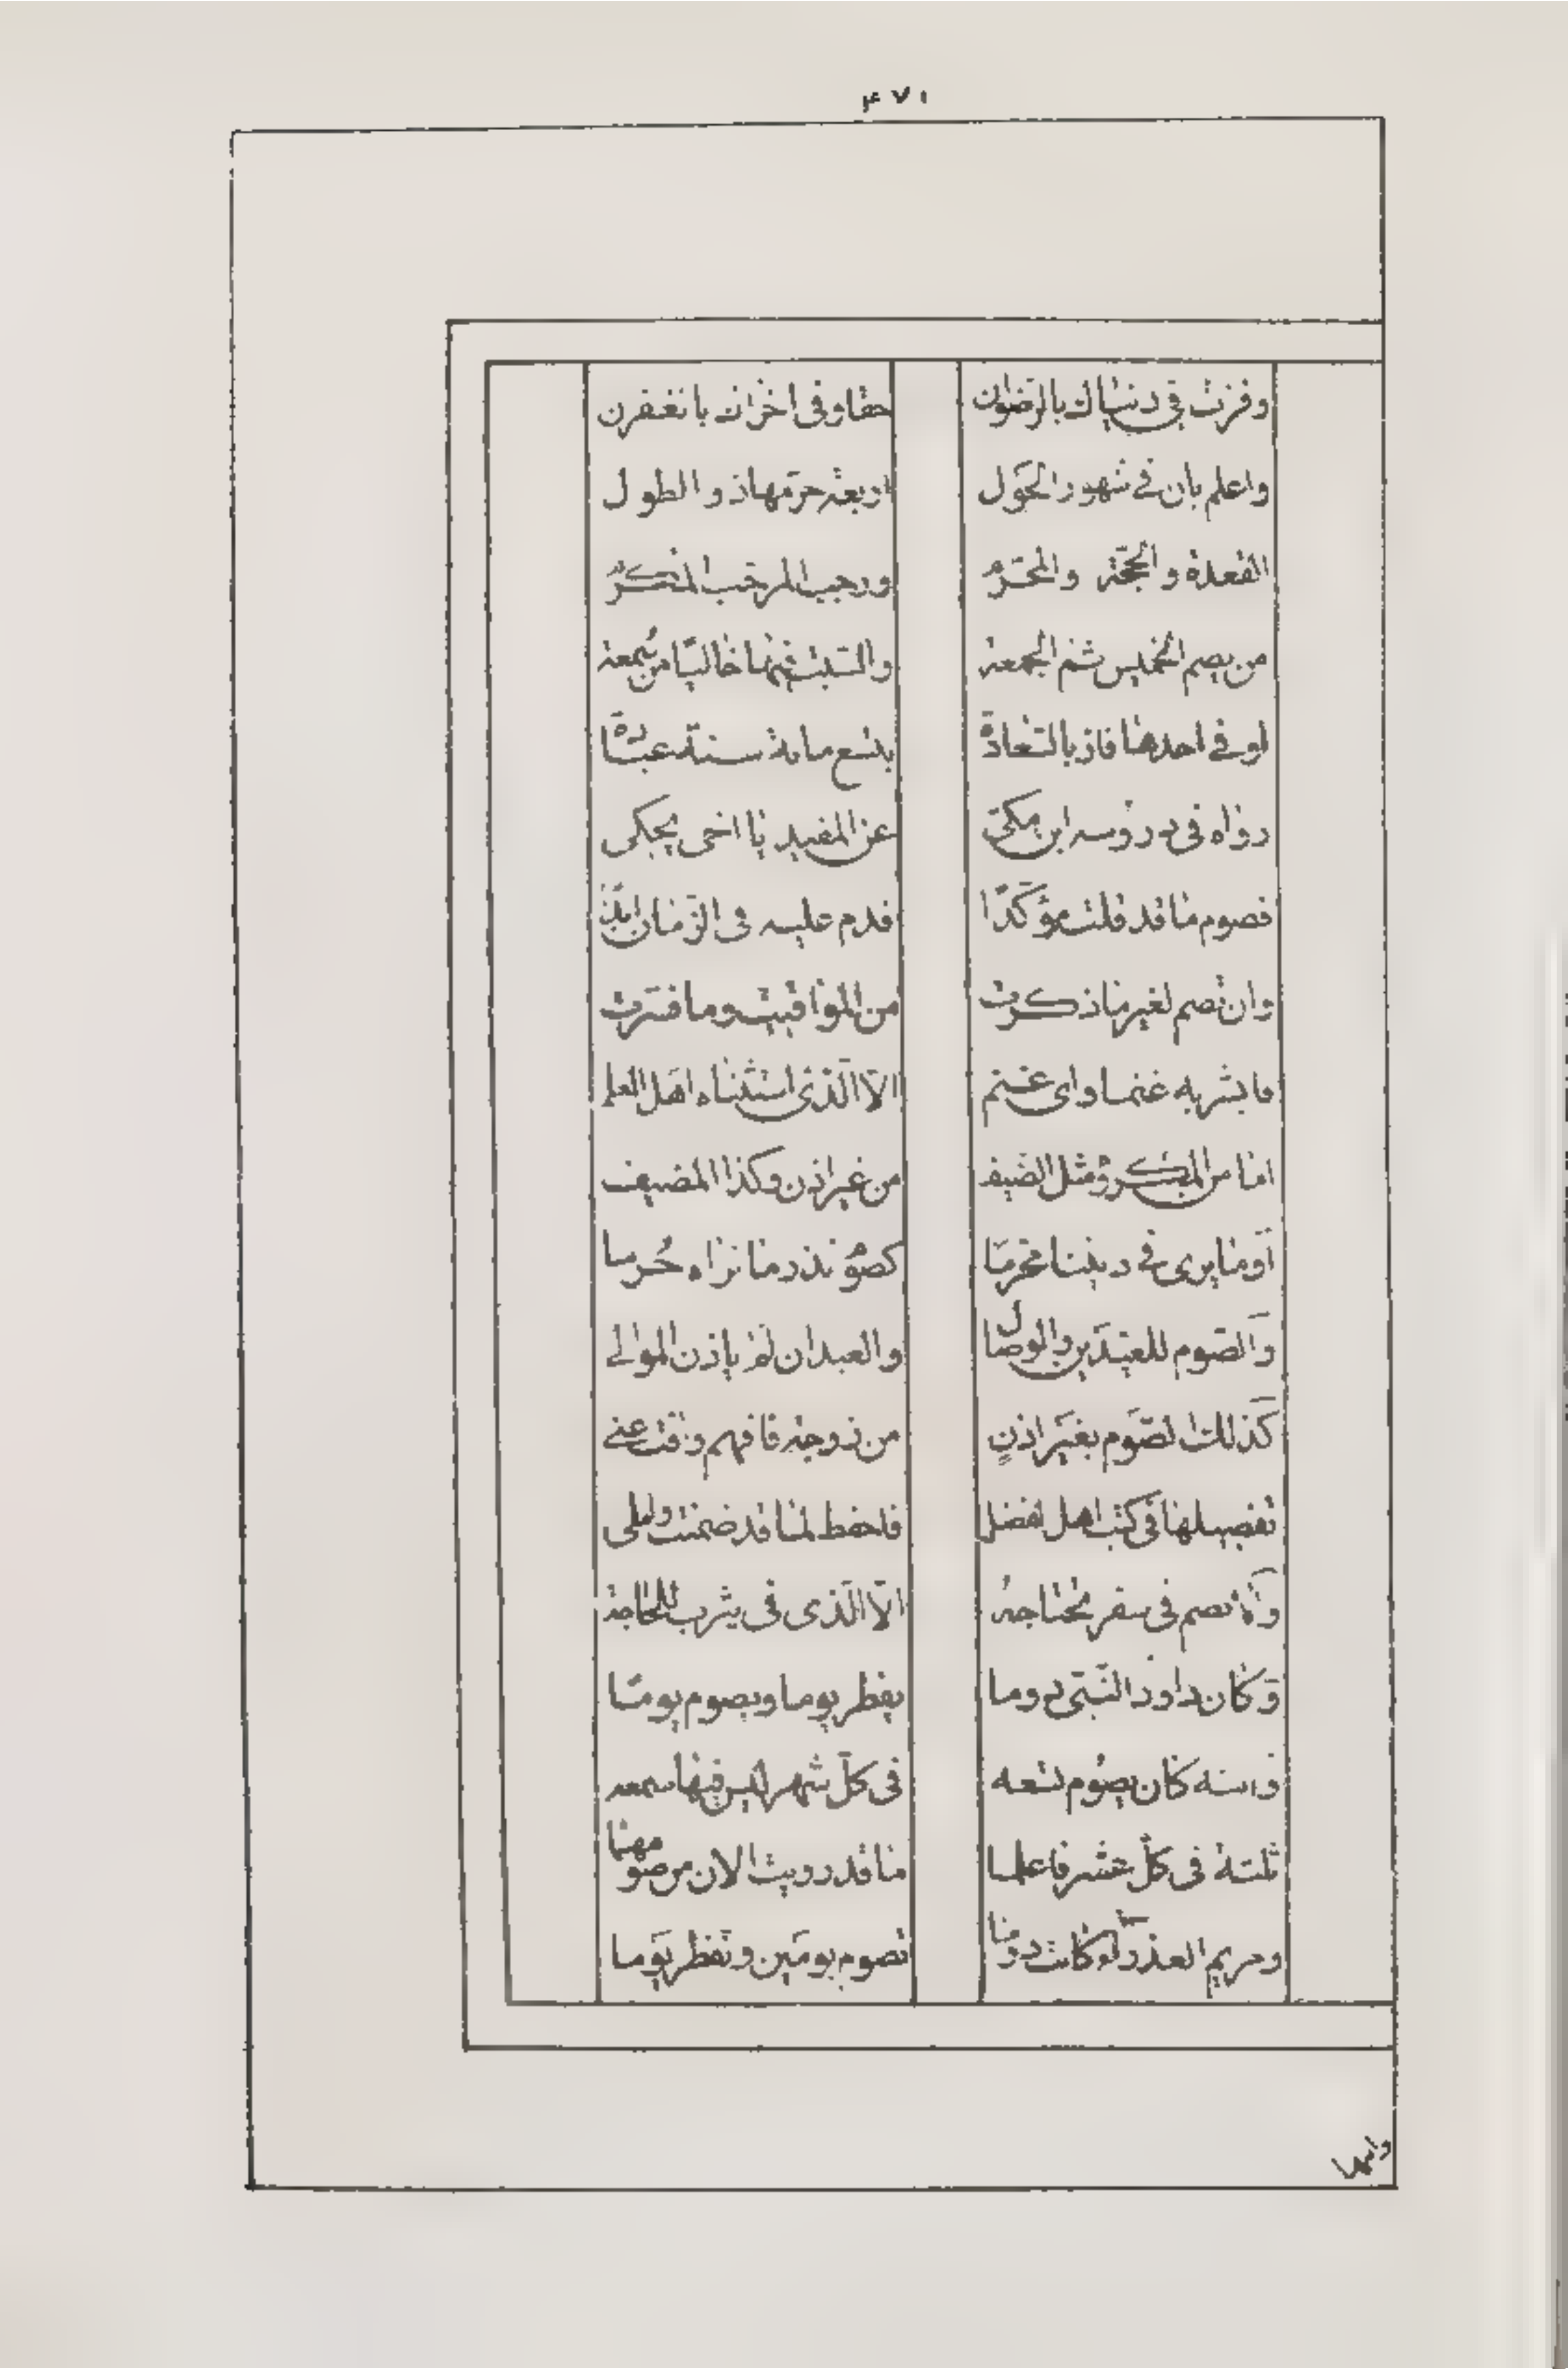 ٤٧١
وفزت في دنياك بالرضوان حقا وفي اخراك بالغفران
واعلم بان في شهور الحول اربعة حرمها ذو الطول
القعدة والحجة والمحرم ورجب المرجب المكرم
من يصم الخميس ثم الجمعة والسبت منها خاليا من سمعة
او في احدها فاز بالسعادة بتسع مائة سنة عبادة
رواه في دروسه ابن مكي عن المفيد يا اخي يحكي
فصوم ما قد قلت مؤكدا فدم عليه في الزمان ابدا
وان تصم لغير ما ذكرت من المواقيت وما فترت
فابشر به غنما واي غنم الا الذي استثناه اهل العلم
اما من المكروه مثل الضيف من غير اذن وكذا المضيف
او ما يرى في ديننا محرما كصوم نذر ما نراه حرما
والصوم للعيدين والوصال والعبد ان لم ياذن الموالي
كذلك الصوم بغير اذن من زوجة فافهم وقت عني
تفصيلها في كتب اهل الفضل فاحفظ لما قد ضمنت
ولا تصم في سفر محتاجة الا الذي في يثرب للحاجة
وكان داود النبي دوما يفطر يوما ويصوم يوما
وانه كان يصوم تسعه في كل شهر ليس فيها سمعه
ثلثة في كل عشر فاعلما ما قد رويت الان من صومهما
ومريم العذراء كانت دوما تصوم يومين وتفطر يوما
وانها